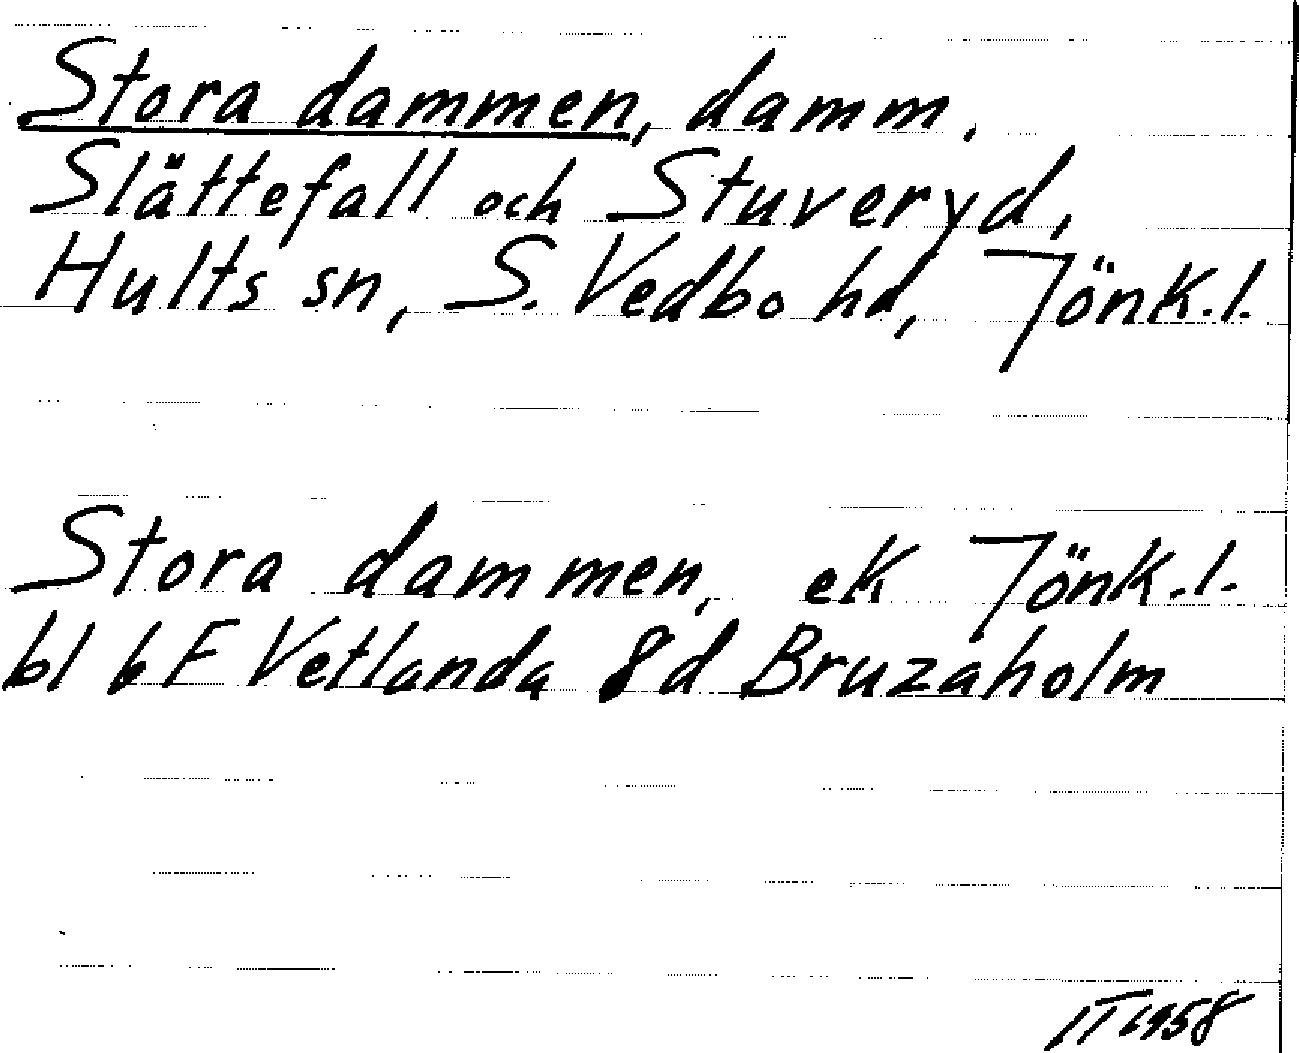 Stora dammen, damm.
Slättefall och Stuveryd,
Hults sn, S. Vedbo hd, Jönk.l.
Stora dammen, ek Jönk.l.
bl 6F Vetlanda 8d Bruzaholm
IT 1958